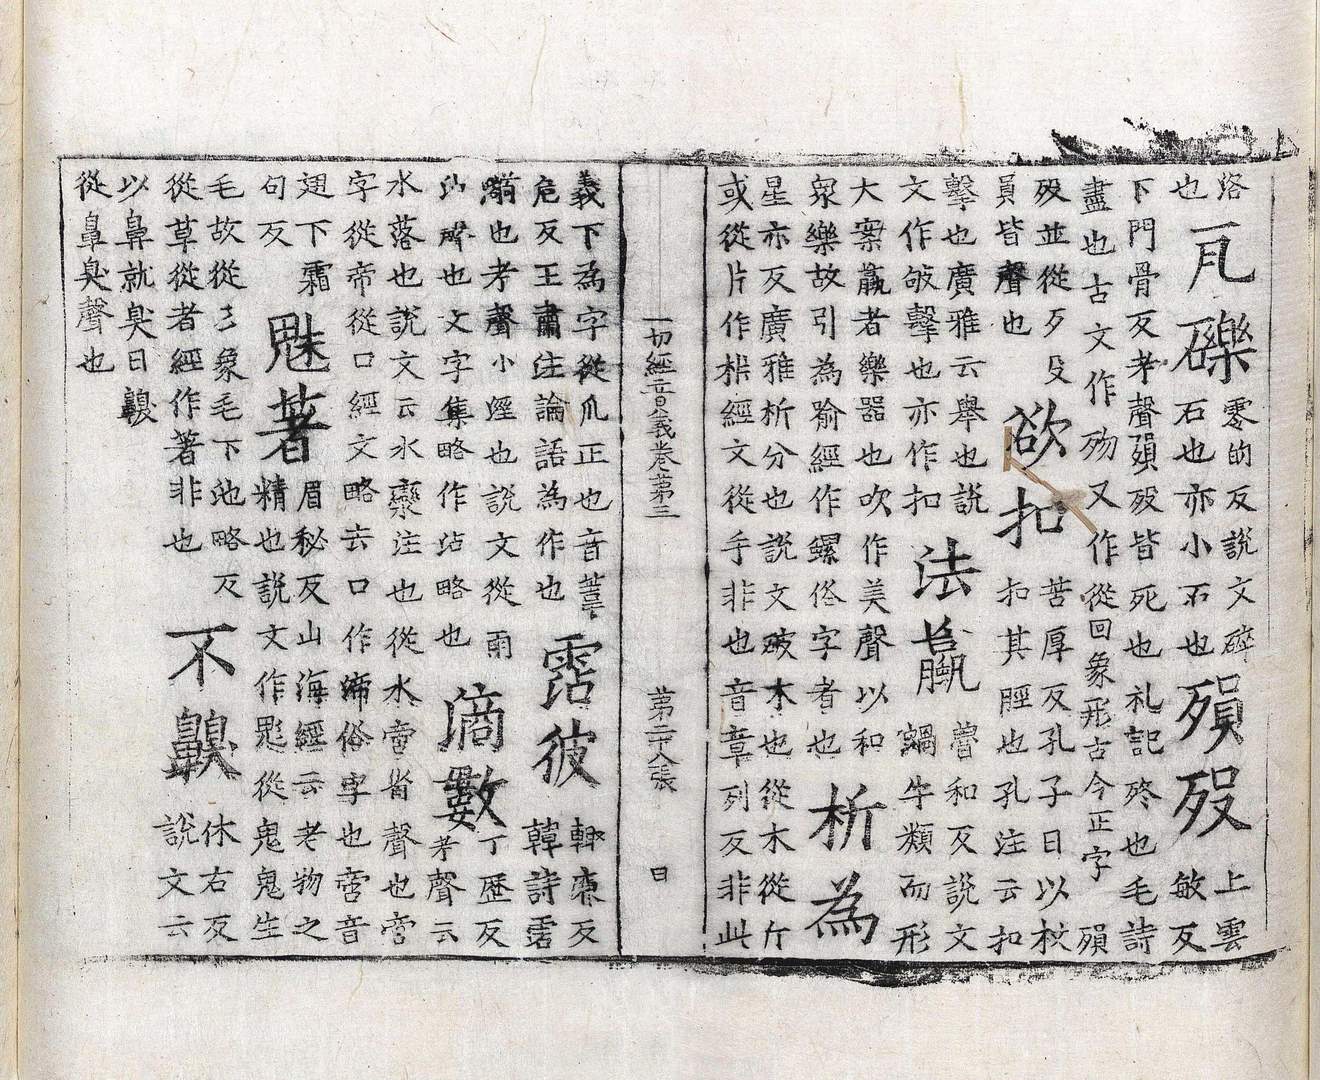 洛也瓦礫零的反說文碎石也亦小石也殞歿上雲敏反
下門骨反考聲殞歿皆死也礼記終也毛詩
盡也古文作歾又作從回象形古今正字殞
歿並從歹殳員皆聲也欲扣苦厚反孔子曰以杖扣其脛也孔注云扣
擊也廣雅云舉也說文作敂擊也亦作扣法蠃魯和反說文蝸牛類而形
大案蠃者樂器也吹作美聲以和衆樂故引為喻經作螺俗字者也析為
星亦反廣雅析分也說文破木也從木從斤
或從片作㭊經文從手非也音章列反非此
一切經音義卷第三 第二十八張 日
義下為字從爪正也音危反王肅注論語為作也霑彼輙廉反韓詩霑
溺也考聲小溼也說文從雨沾聲也文字集略作沾略也滴數丁歷反考聲云
水落也說文云水欒注也從水啻省聲也啻
字從帝從口經文略去口作渧俗字也啻音
翅下霜句反魅著眉秘反山海經云老物之精也說文作鬽從鬼鬼生
毛故從彡象毛下池略反從草從者經作著非也不齅休右反說文云
以鼻就臭曰齅
從鼻臭聲也